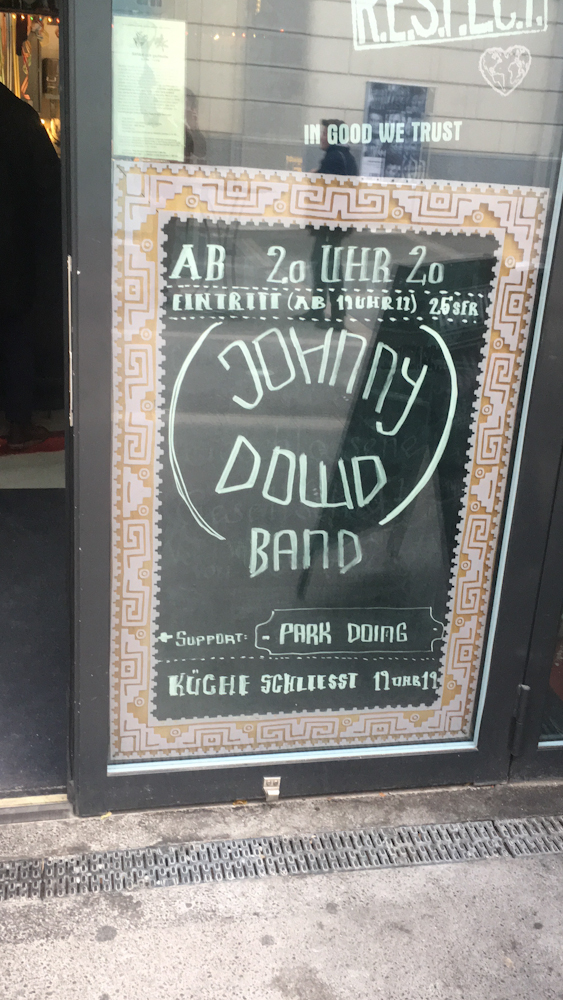 R.E.S.P.E.C.T.
IN GOOD WE TRUST
AB 20 UHR 20
EINTRITT (AB 19UHR22) 25 SFR
JOHNNY
DOWD
BAND
+ SUPPORT: - PARK DOING
KÜCHE SCHLIESST 19UHR19